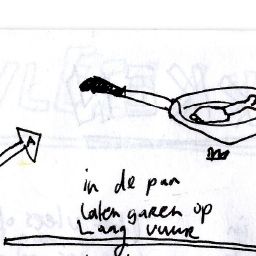 in de pan
laten garen op
Laag vuur